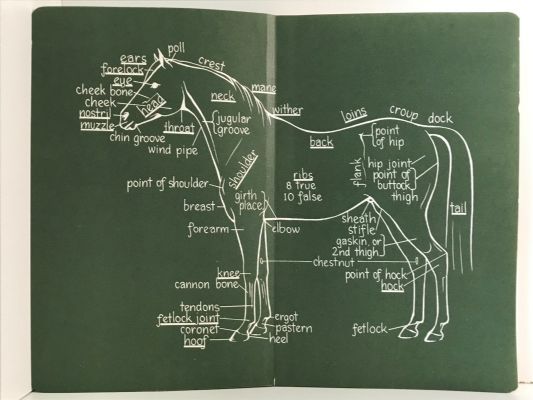 poll
ears
crest
forelock
eye
mane
cheek bone
neck
head
cheek
wither
loins
croup
dock
nostril
jugular
groove
muzzle
throat
point
of hip
chin groove
back
wind pipe
flank
shoulder
hip joint
ribs
point of
buttock
point of shoulder
8 true
10 false
thigh
girth
place
tail
breast
sheath
stifle
forearm
elbow
gaskin, or
2nd thigh
chestnut
knee
point of hock
cannon bone
hock
tendons
fetlock joint
ergot
coronet
pastern
fetlock
hoof
heel